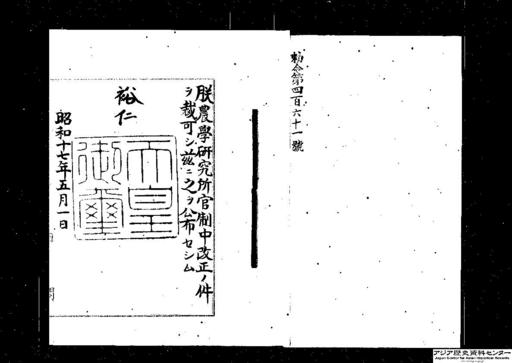 勅令第四百六十一號
朕農學研究所官制中改正ノ件
ヲ裁可シ茲ニ之ヲ公布セシム
裕仁
天皇
御璽
昭和十七年五月一日
アジア歴史資料センター
Japan Center for Asian Historical Records